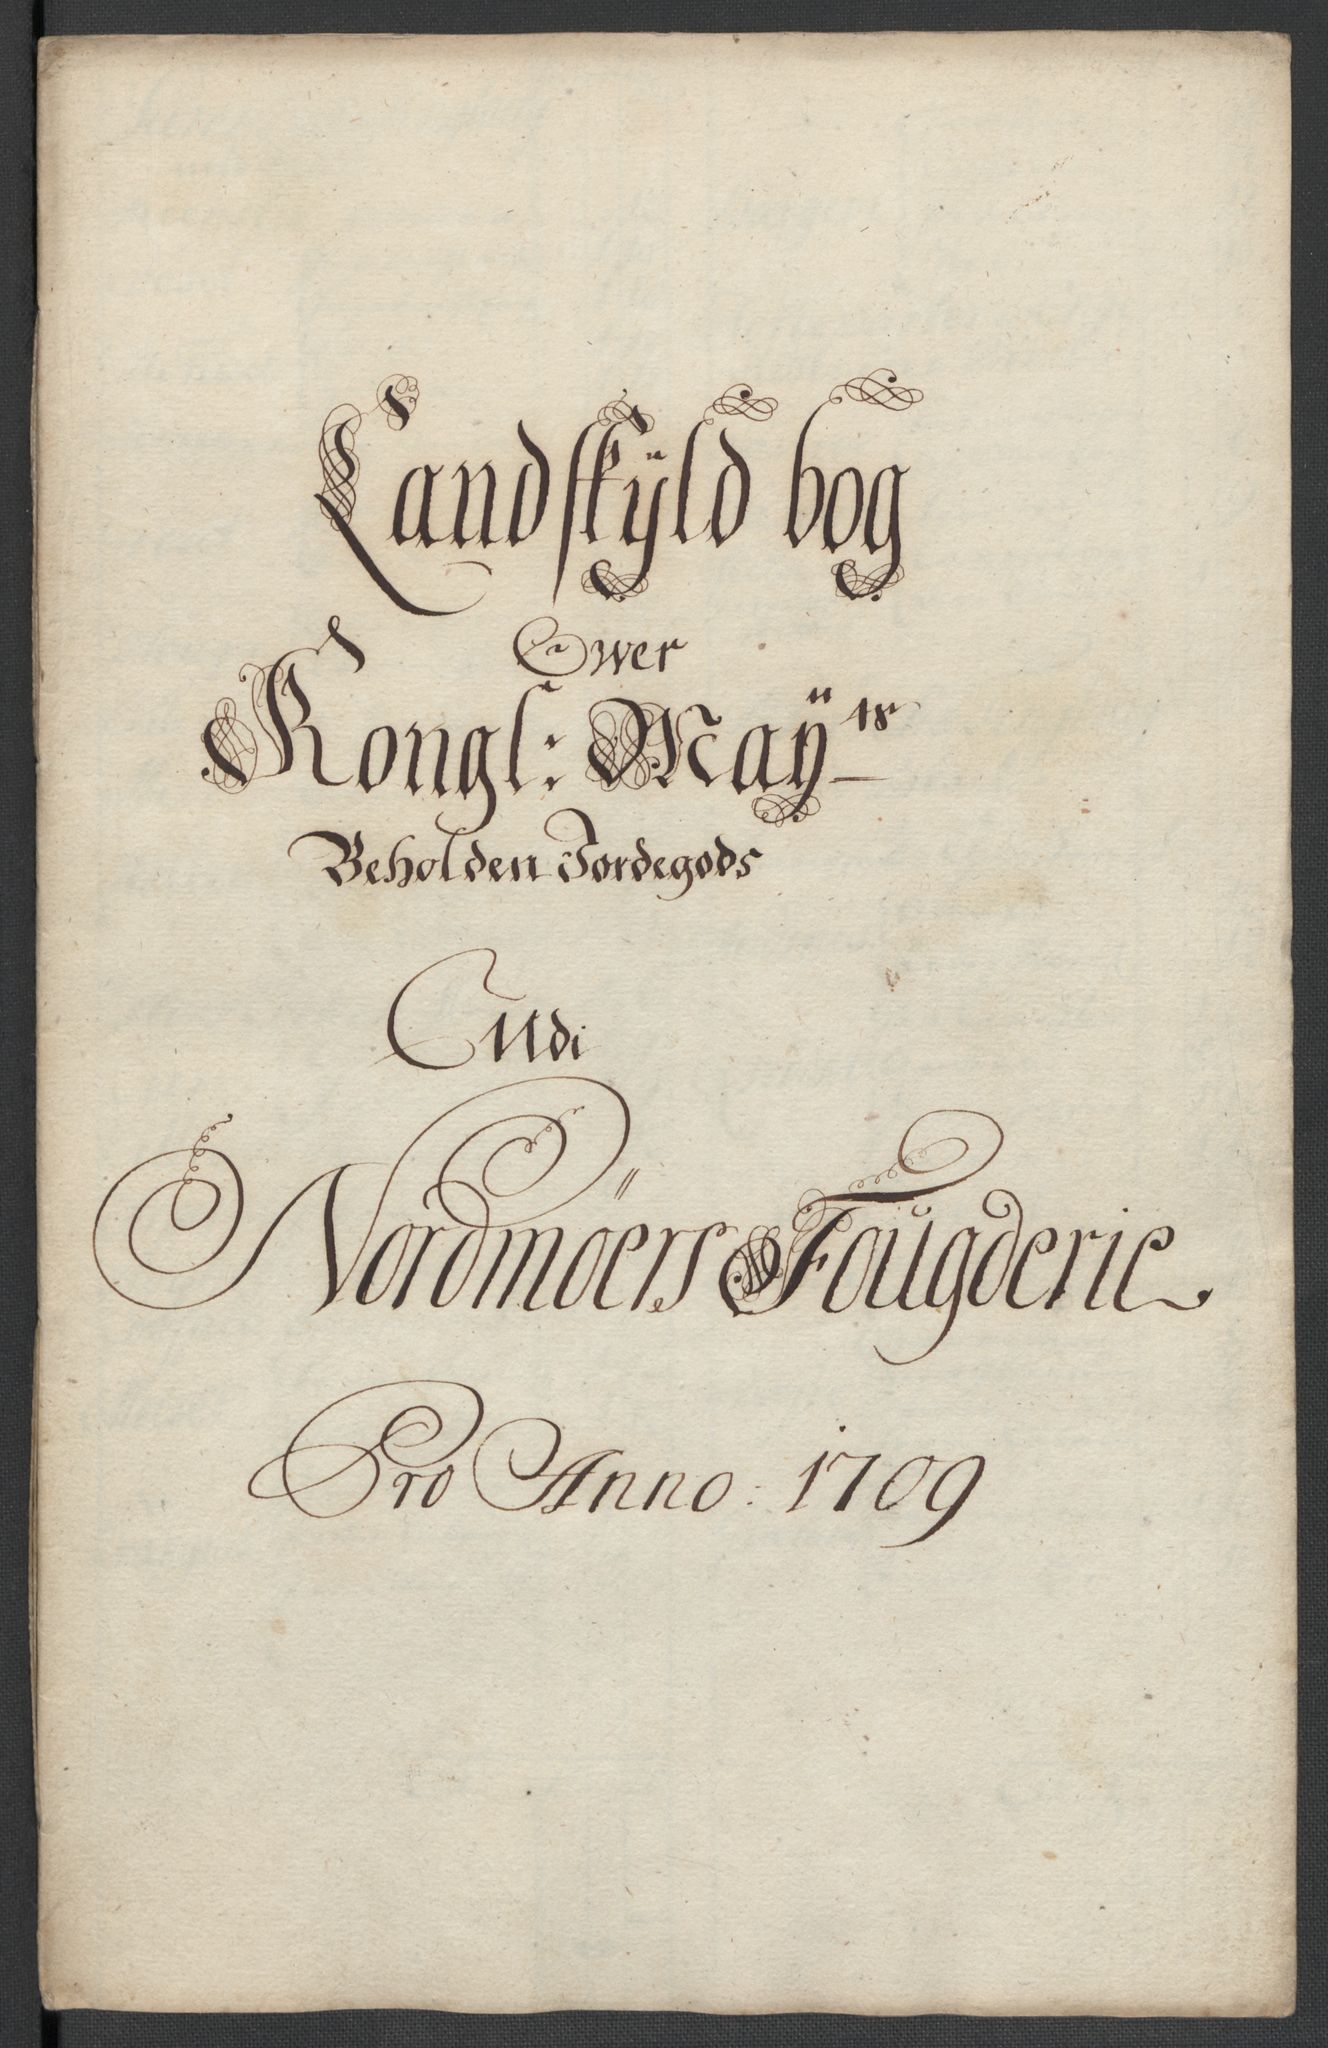 Landskÿld bog
Ower
Kongl: Maÿts
Beholden Jordegods
Udi
Nordmöers Fougderie
Pro Anno: 1709